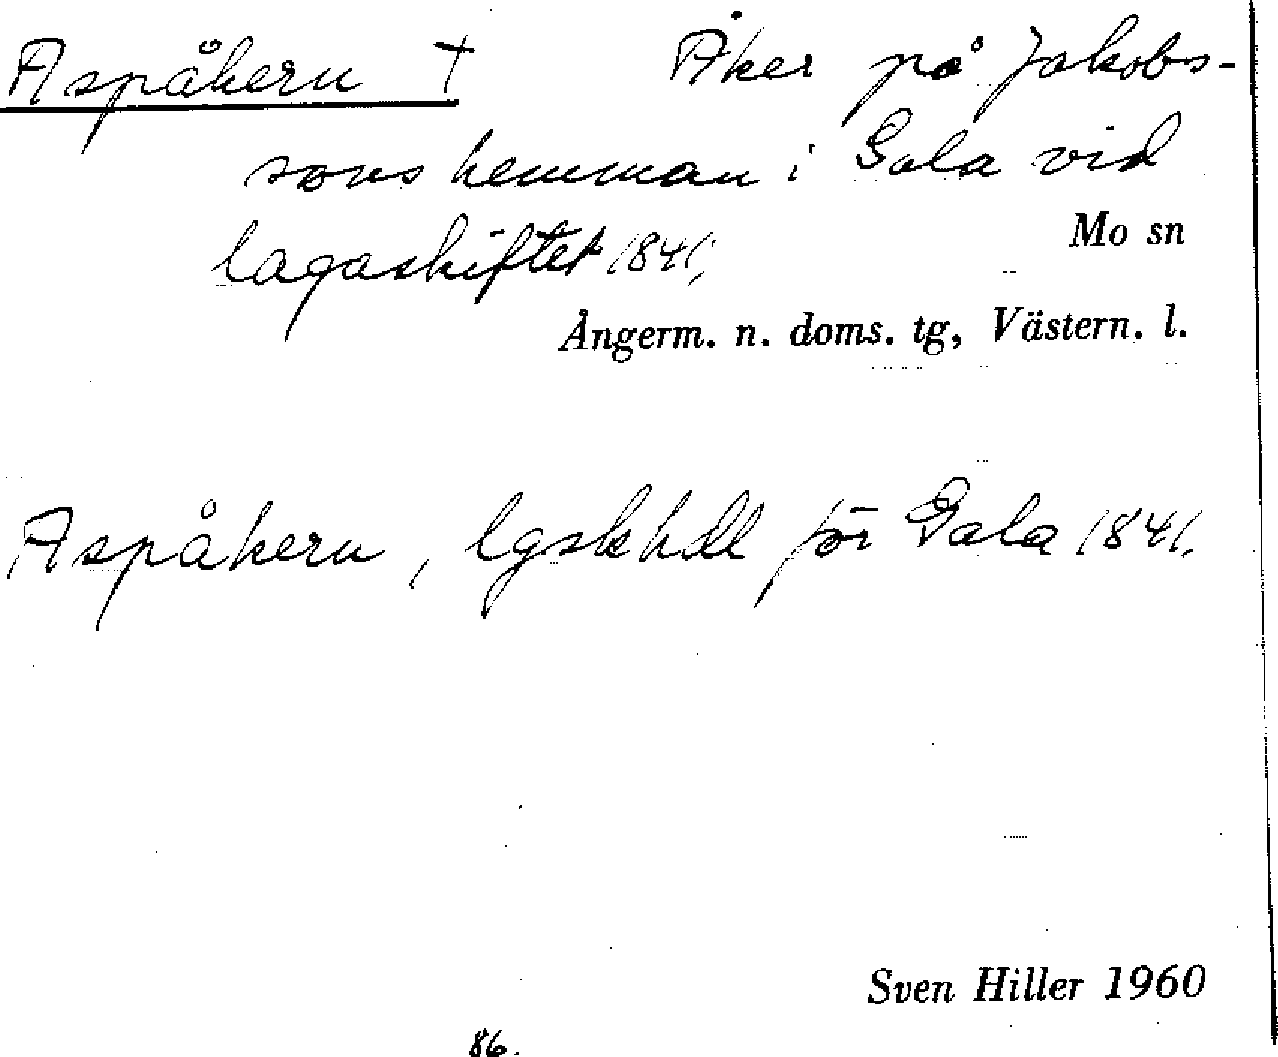 Aspåkern † Åker på Jakobs-
sons hemman i Gala vid
lagaskiftet 1841;
Mo sn
Ångerm. n. doms. tg, Västern. l.
Aspåkern, lgskhdl för Gala 1841.
Sven Hiller 1960
86.